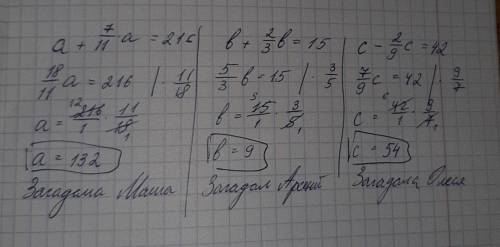 a + 7/11 · a = 216
18/11 a = 216 | · 11/18
a = 216/1 · 11/18 12 1
a = 132
Загадала Маша
b + 2/3 b = 15
5/3 b = 15 | · 3/5
b = 15/1 · 3/5 3 1
b = 9
Загадал Арсений
c - 2/9 c = 42
7/9 c = 42 | · 9/7
c = 42/1 · 9/7 6 1
c = 54
Загадала Олеся